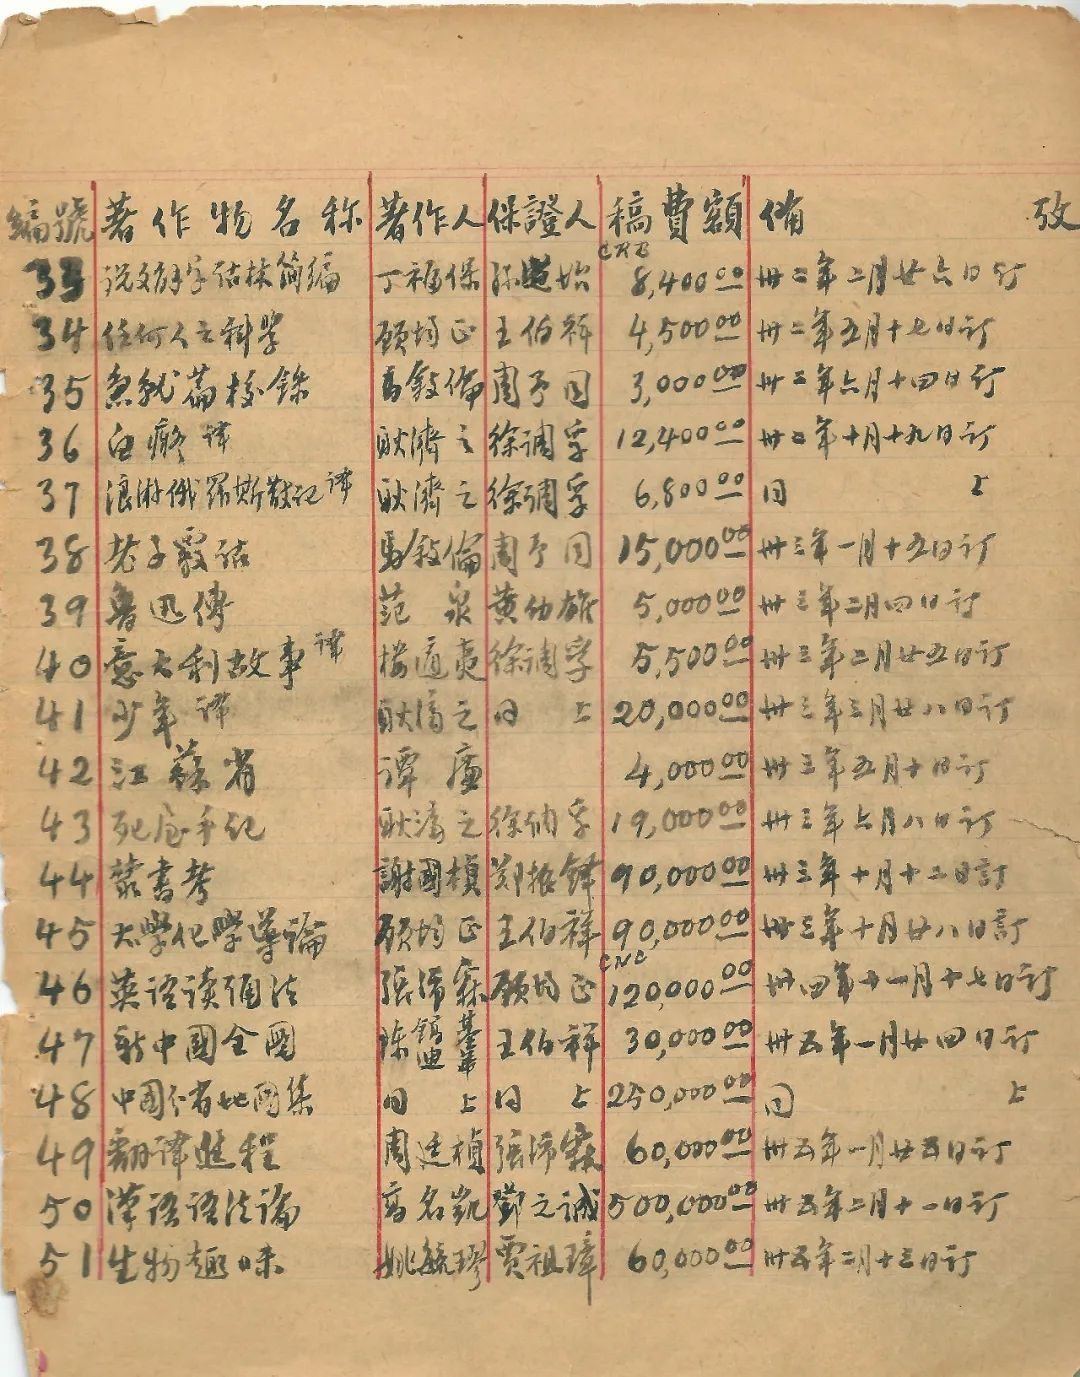 編號 著作物名称 著作人 保證人 稿費額 備攷
CRB
33 说文解字詁林简编 丁福保 孙道始 8,400.00 卅二年二月廿六日订
34 任何人之科学 顾均正 王伯祥 4,500.00 卅二年五月十七日订
35 急就篇校 馬敘倫 周予同 3,000.00 卅二年六月十四日订
36 白癡 译 耿濟之 徐调孚 12,400.00 卅二年十月十九日订
37 浪游俄羅斯散记 译 耿濟之 徐调孚 6,800.00 同上
38 老子覈诂 馬敘倫 周予同 15,000.00 卅三年一月十五日订
39 魯迅傳 范泉 黄幼雄 5,000.00 卅三年二月四日订
40 意大利故事 译 楼适夷 徐调孚 5,500.00 卅三年二月廿五日订
41 少年 译 耿濟之 同上 20,000.00 卅三年三月廿八日订
42 江蘇省 谭廉 4,000.00 卅三年五月十日订
43 死屋手记 耿濟之 徐调孚 19,000.00 卅三年六月八日订
44 叢書考 謝國楨 郑振鐸 90,000.00 卅三年十月十二日訂
45 大學化學導論 顾均正 王伯祥 90,000.00 卅三年十月廿八日訂
CNC
46 英语读音法 張沛霖 顾均正 120,000.00 卅四年十一月十七日订
47 新中國全圖 陈鎬基 迪華 王伯祥 30,000.00 卅五年一月廿四日订
48 中國分省地圖集 同上 同上 250,000.00 同上
49 翻译進程 周廷楨 張沛霖 60,000.00 卅五年一月廿五日订
50 漢语语法論 高名凯 鄧之诚 500,000.00 卅五年二月十一日订
51 生物趣味 姚毓璆 贾祖璋 60,000.00 卅五年二月十三日订